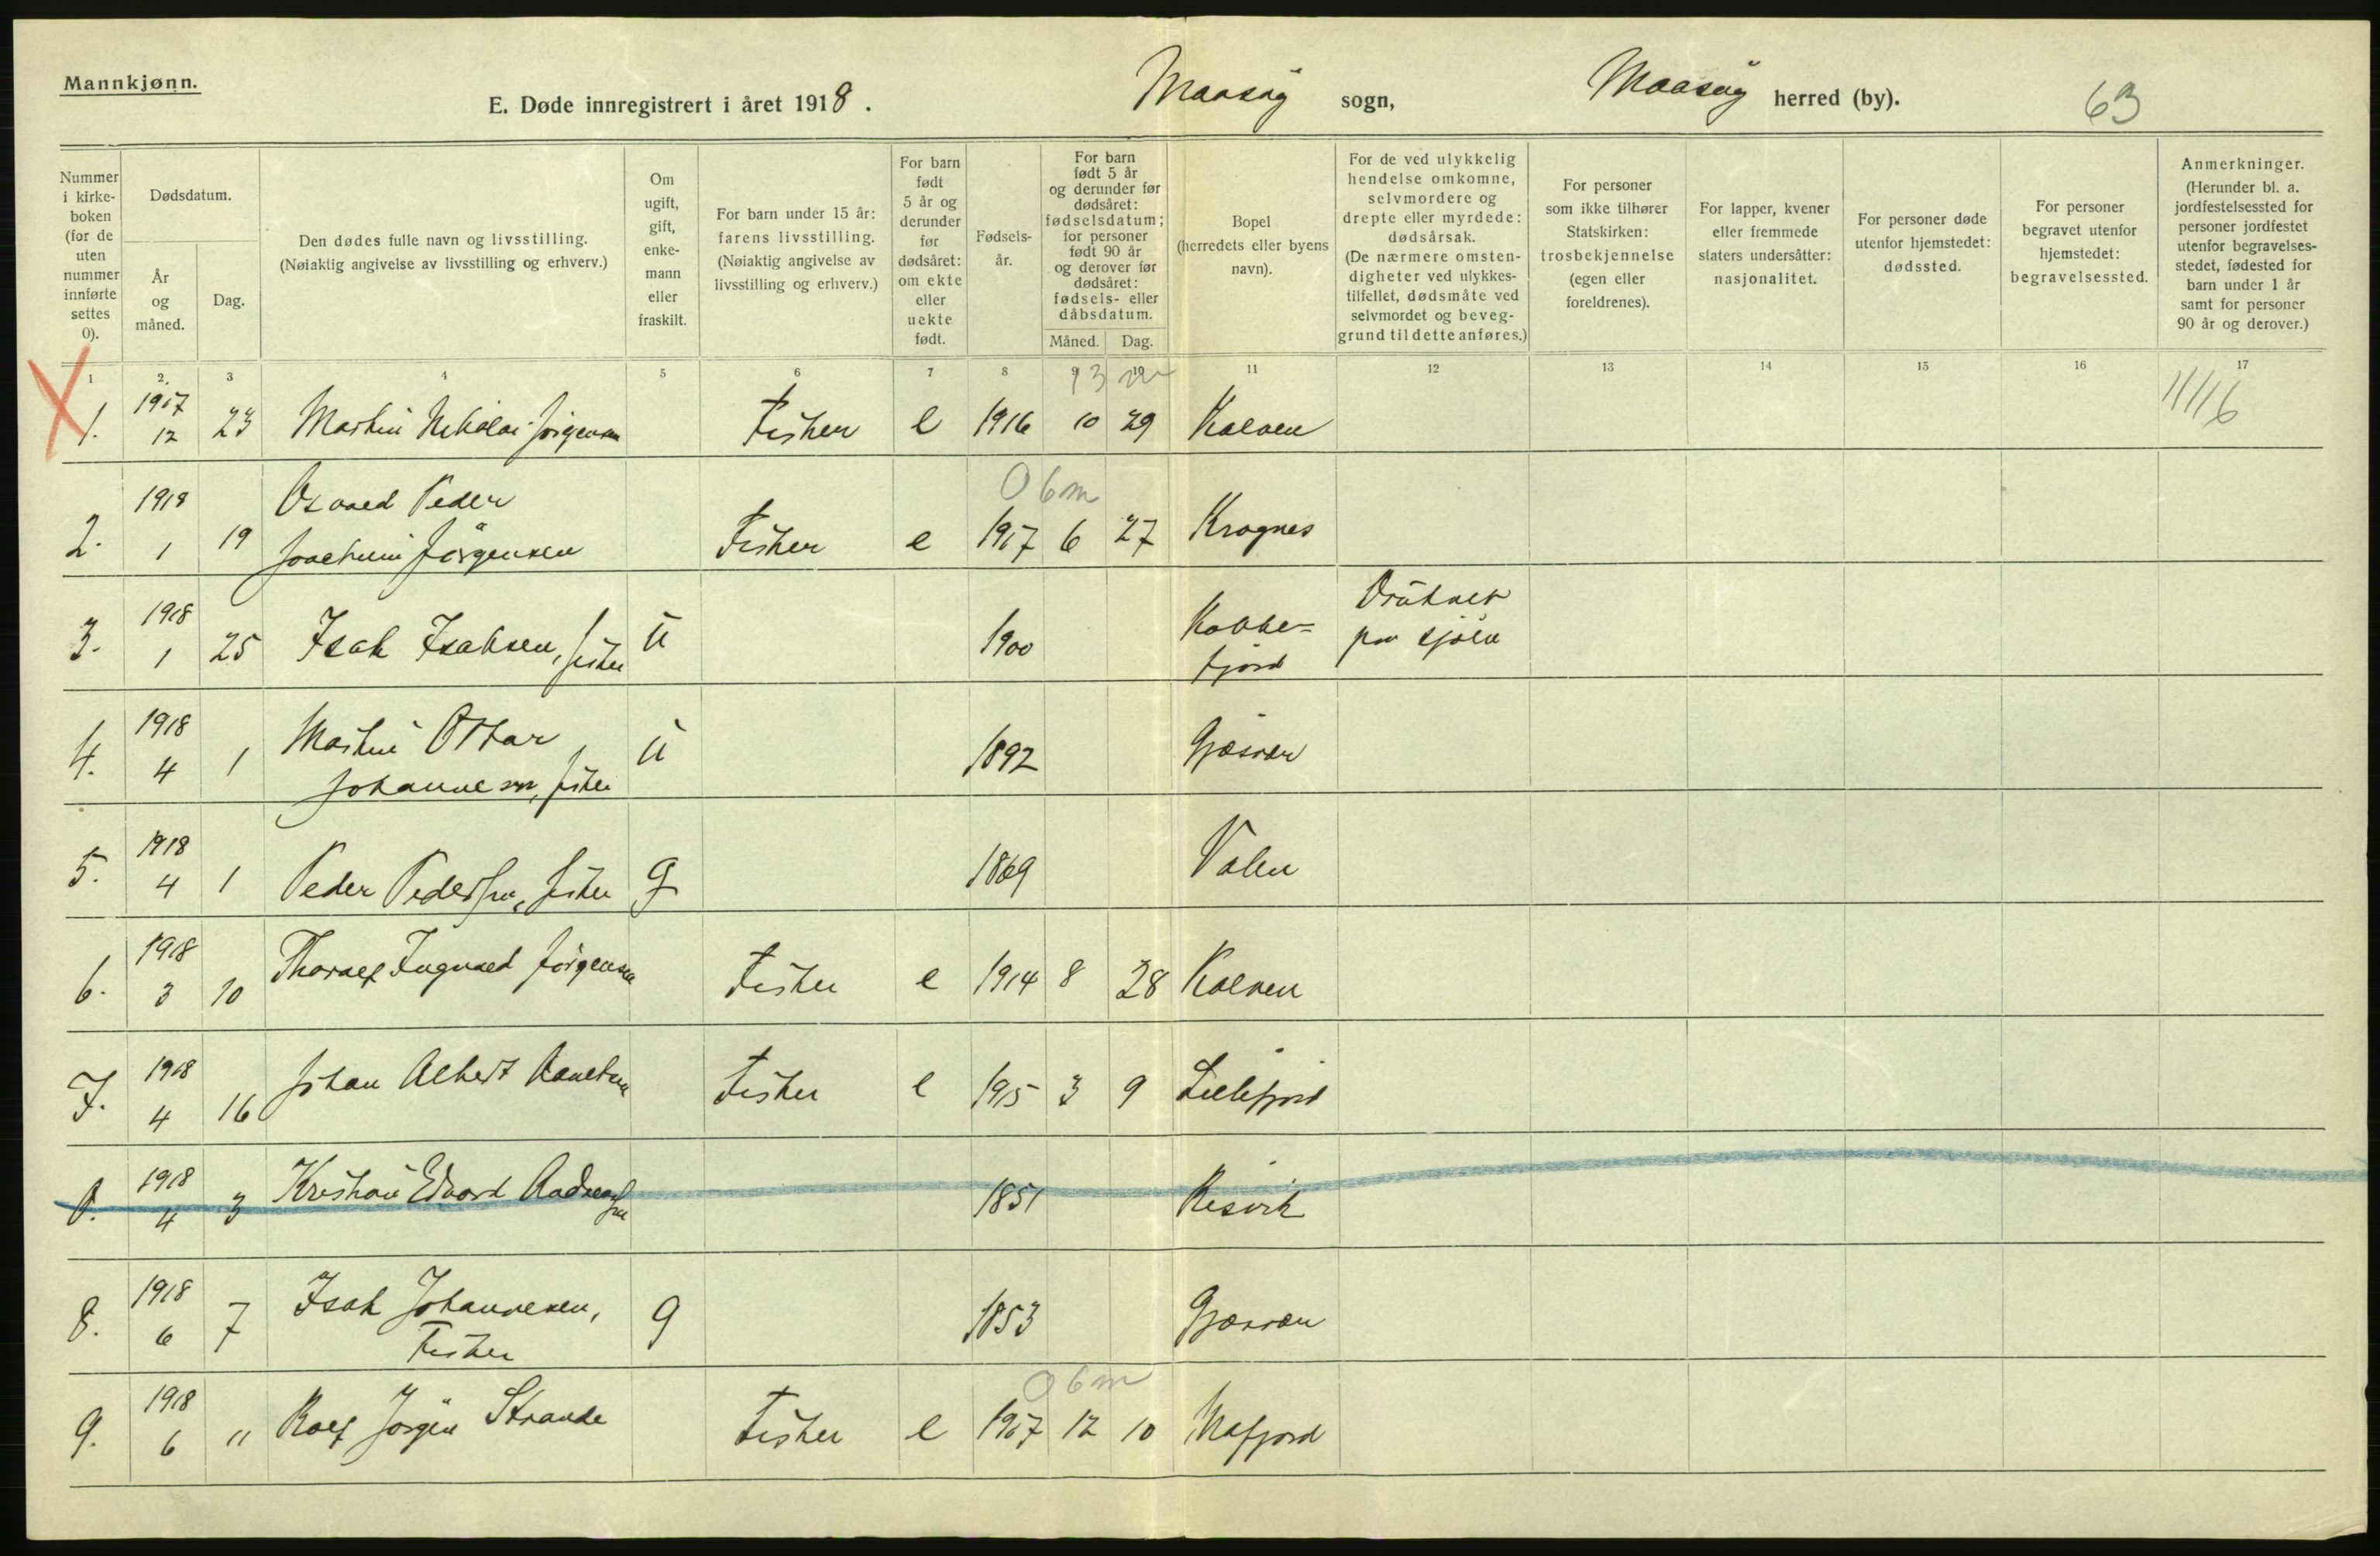 Mannkjønn.
E. Døde innregistrert i året 1918.
Maasøy sogn,
Maasøy herred (by).
63
Nummer i kirkeboken (for de uten nummer innførte settes 0).
Dødsdatum.
År og måned.
Dag.
Den dødes fulle navn og livsstilling.
(Nøiaktig angivelse av livsstilling og erhverv.)
Om ugift, gift, enkemann eller fraskilt.
For barn under 15 år: farens livsstilling.
(Nøiaktig angivelse av livsstilling og erhverv.)
For barn født 5 år og derunder før dødsåret: om ekte eller uekte født.
Fødselsår.
For barn født 5 år og derunder før dødsåret: fødselsdatum; for personer født 90 år og derover før dødsåret: fødsels- eller dåbsdatum.
Måned. Dag.
Bopel (herredets eller byens navn).
For de ved ulykkelig hendelse omkomne, selvmordere og drepte eller myrdede: dødsårsak.
(De nærmere omstendigheter ved ulykkestilfellet, dødsmåte ved selvmordet og beveggrund til dette anføres.)
For personer som ikke tilhører Statskirken: trosbekjennelse (egen eller foreldrenes).
For lapper, kvener eller fremmede staters undersåtter: nasjonalitet.
For personer døde utenfor hjemstedet: dødssted.
For personer begravet utenfor hjemstedet: begravelsessted.
Anmerkninger.
(Herunder bl. a. jordfestelsessted for personer jordfestet utenfor begravelsesstedet, fødested for barn under 1 år samt for personer 90 år og derover.)
1 2. 3 4 5 6 7 8 9 10 11 12 13 14 15 16 17
1. 1917 12 23 Martin Nikolai Jørgensen Fisker e 1916 10 29 Kalven
0 6m
2. 1918 1 19 Osvald Peder
Joachim Jørgensen Fisker e 1917 6 27 Krognes
3. 1918 1 25 Isak Isaksen, fisker u 1900 Kobbe=
fjord Druknet
paa sjøen
4. 1918 4 1 Martin Ottar
Johannesen, fisker u 1892 Gjæsvær
5. 1918 4 1 Peder Pedersen, fisker g 1869 Valen
6. 1918 3 10 Thoralf Ingvald Jørgensen Fisker e 1914 8 28 Kalven
7. 1918 4 16 Johan Albert Fisker e 1915 3 9 Lillefjord
0. 1918 4 3 Kristian Edvard Andreassen 1851 Risvik
8. 1918 6 7 Isak Johannesen,
Fisker g 1853 Gjæsvær
0 6m
9. 1918 6 11 Rolf Jørgen Strande Fisker e 1917 12 10 Mafjord